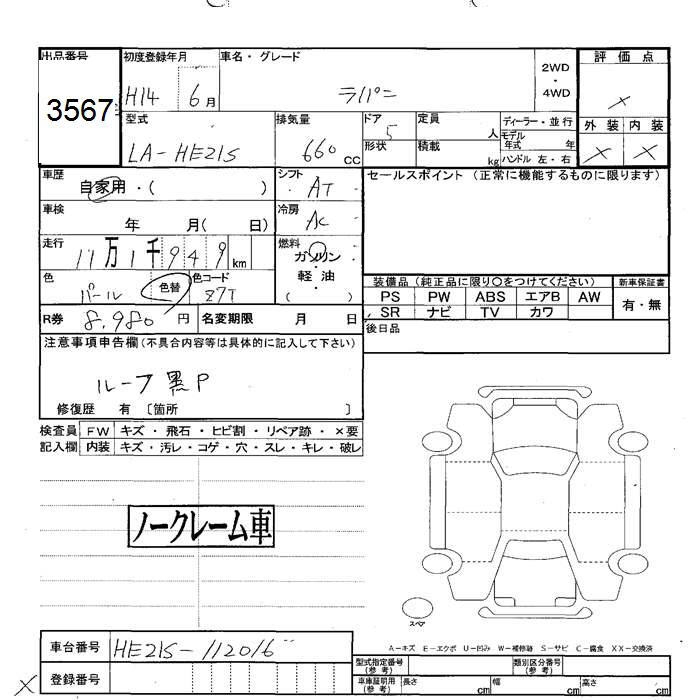 出品番号 初度登録年月 車名・グレード 2WD ・ 4WD 評価点
3567 H14 6月 ラパン ×
型式 排気量 ドア 定員 ディーラー・並行 外装 内装
LA-HE21S 660 CC 5 人 モデル年式 年 × ×
形状 積載 kg ハンドル 左・右
車歴 自家用・( ) シフト AT セールスポイント (正常に機能するものに限ります)
車検 年 月( 日) 冷房 AC
走行 11万1千949km 燃料 ガソリン・軽油 ( )
色 パール 色替 色コード Z7T
装備品 (純正品に限り○をつけてください) 新車保証書
PS PW ABS エアB AW 有・無
SR ナビ TV カワ
R券 8,980円 名変期限 月 日 後日品
注意事項申告欄(不具合内容等は具体的に記入して下さい)
ルーフ黒P
修復歴 有 〔箇所 〕
検査員 FW キズ・飛石・ヒビ割・リペア跡・×要
記入欄 内装 キズ・汚レ・コゲ・穴・スレ・キレ・破レ
ノークレーム車
スペア
車台番号 HE21S-112016
A-キズ E-エクボ U-凹み W-補修跡 S-サビ C-腐食 XX-交換済
登録番号
型式指定番号(参考) 類別区分番号(参考)
車庫証明用(参考) 長さ cm 幅 cm 高さ cm
×